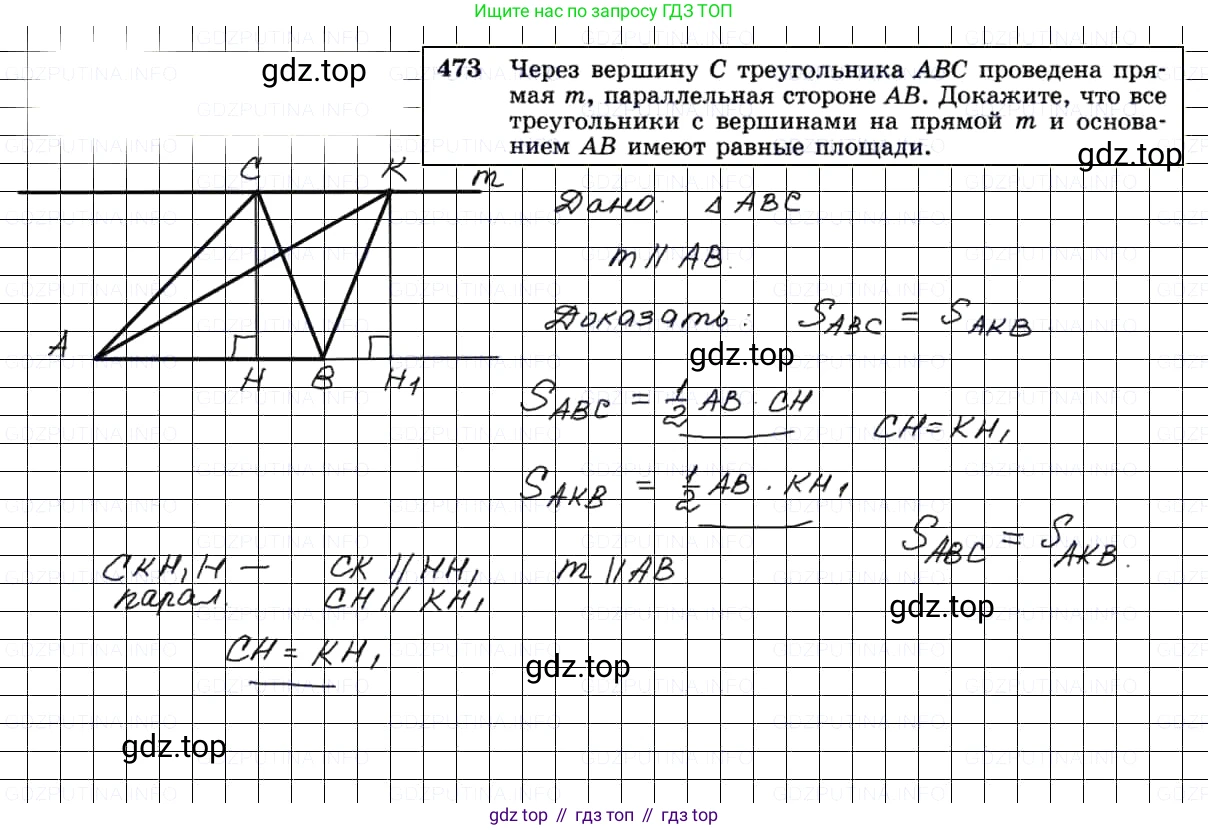 Ищите нас по запросу ГДЗ ТОП
gdz.top
473 Через вершину C треугольника ABC проведена пря-
мая m, параллельная стороне AB. Докажите, что все
треугольники с вершинами на прямой m и основа-
нием AB имеют равные площади.
gdz.top
C K m
A
H B H₁
Дано: △ ABC
m // AB.
Доказать: S_ABC = S_AKB.
gdz.top
S_ABC = 1/2 AB · CH
CH = KH₁
S_AKB = 1/2 AB · KH₁
S_ABC = S_AKB.
CKH₁H – CK // HH₁ m // AB
парал. CH // KH₁
gdz.top
CH = KH₁
gdz.top
gdz.top
gdz top // гдз топ // гдз top
GDZPUTINA.INFO